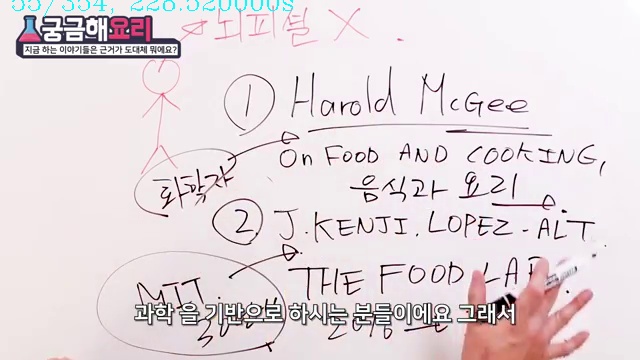 55/354, 228.520000s
궁금해요리
지금 하는 이야기들은 근거가 도대체 뭐에요?
뇌피셜 X
① Harold McGee
ON FOOD AND COOKING,
화학자
음식과 요리
② J. KENJI. LOPEZ-ALT
THE FOOD LAB
MIT
과학 을 기반으로 하시는 분들이에요 그래서